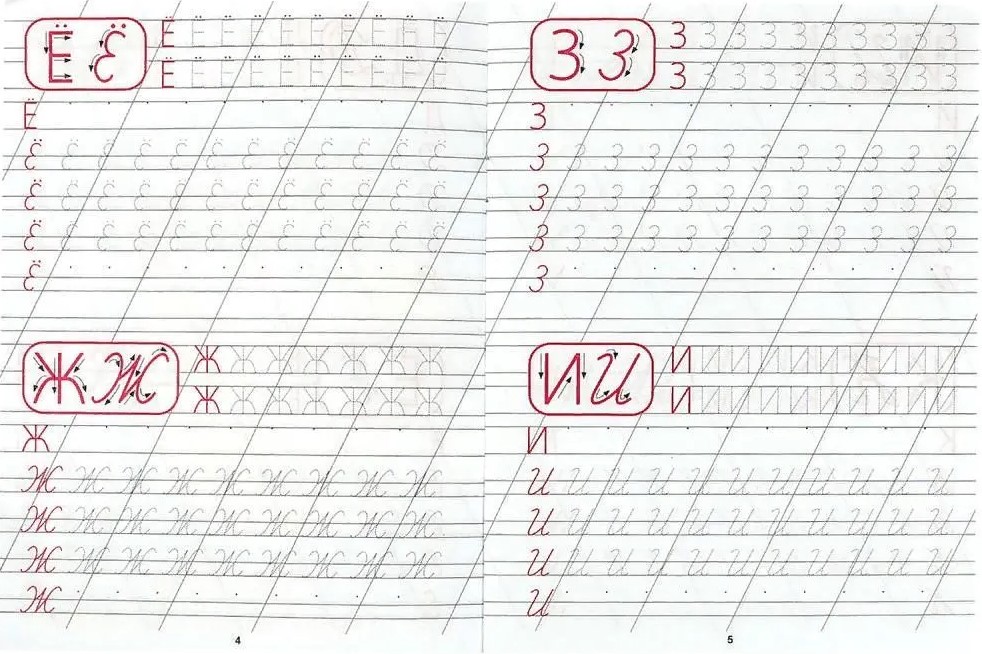 Ё Ё Ё Ё Ё Ё Ё Ё Ё Ё Ё Ё
Ё Ё Ё Ё Ё Ё Ё Ё Ё Ё
Ё
Ё Ё Ё Ё Ё Ё Ё Ё Ё Ё Ё Ё
Ё Ё Ё Ё Ё Ё Ё Ё Ё Ё Ё Ё
Ё Ё Ё Ё Ё Ё Ё Ё Ё Ё Ё Ё
Ё
Ж Ж Ж Ж Ж Ж Ж Ж Ж
Ж Ж Ж Ж Ж Ж Ж
Ж
Ж Ж Ж Ж Ж Ж Ж Ж Ж
Ж Ж Ж Ж Ж Ж Ж Ж Ж
Ж Ж Ж Ж Ж Ж Ж Ж Ж
Ж
4
З З З З З З З З З З З З
З З З З З З З З З З
З
З З З З З З З З З З З З
З З З З З З З З З З З З
З З З З З З З З З З З З
З
И И И И И И И И И И И И И И
И И И И И И И И И И И И
И
И И И И И И И И И И И
И И И И И И И И И И И
И И И И И И И И И И И
И
5